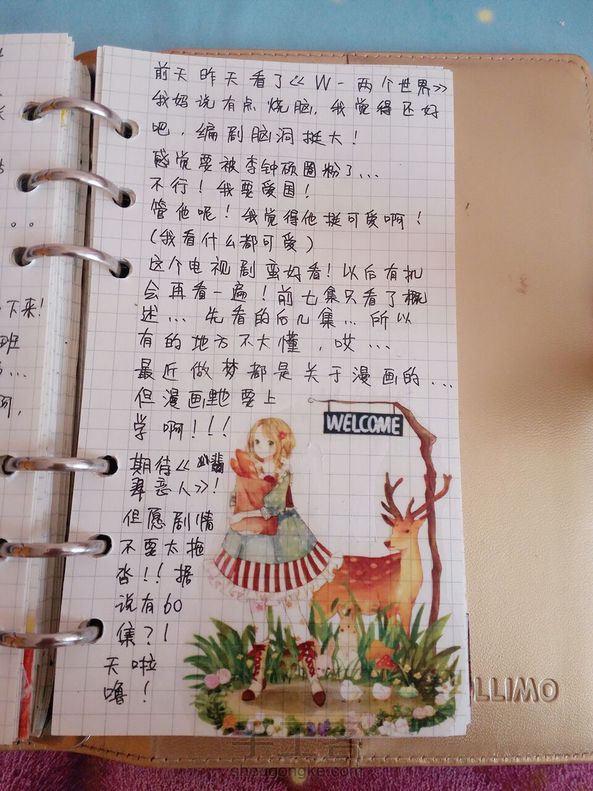 前天昨天看了《W-两个世界》
我妈说有点烧脑,我觉得还好
吧,编剧脑洞挺大!
感觉要被李钟硕圈粉了...
不行!我要爱国!
管他呢!我觉得他挺可爱啊!
(我看什么都可爱)
这个电视剧蛮好看!以后有机
会再看一遍!前七集只看了概
述...先看的后几集...所以
有的地方不大懂,哎...
最近做梦都是关于漫画的...
但漫画也要上
学啊!!!
WELCOME
期待《翡
罪恶人》!
但愿剧情
不要太拖
沓!!据
说有60
集?!
天啦
噜!
LLIMO
下来!
班
shougongke.com